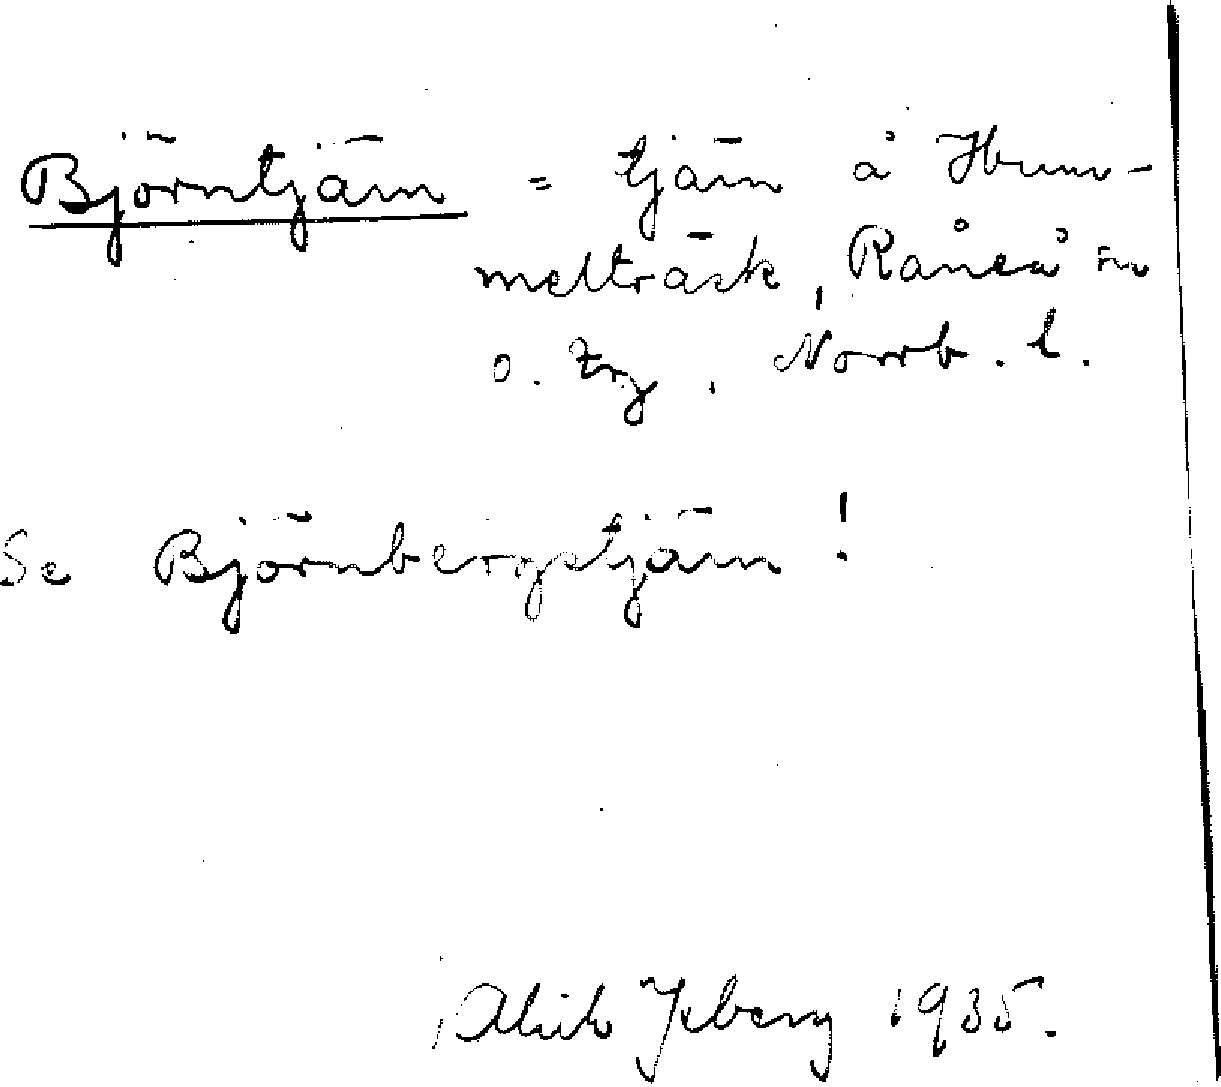 Björntjärn = tjärn å Hum-
melträsk, Råneå sn
o. tng, Norrb. l.
Se Björnbergstjärn!
Isberg 1935.